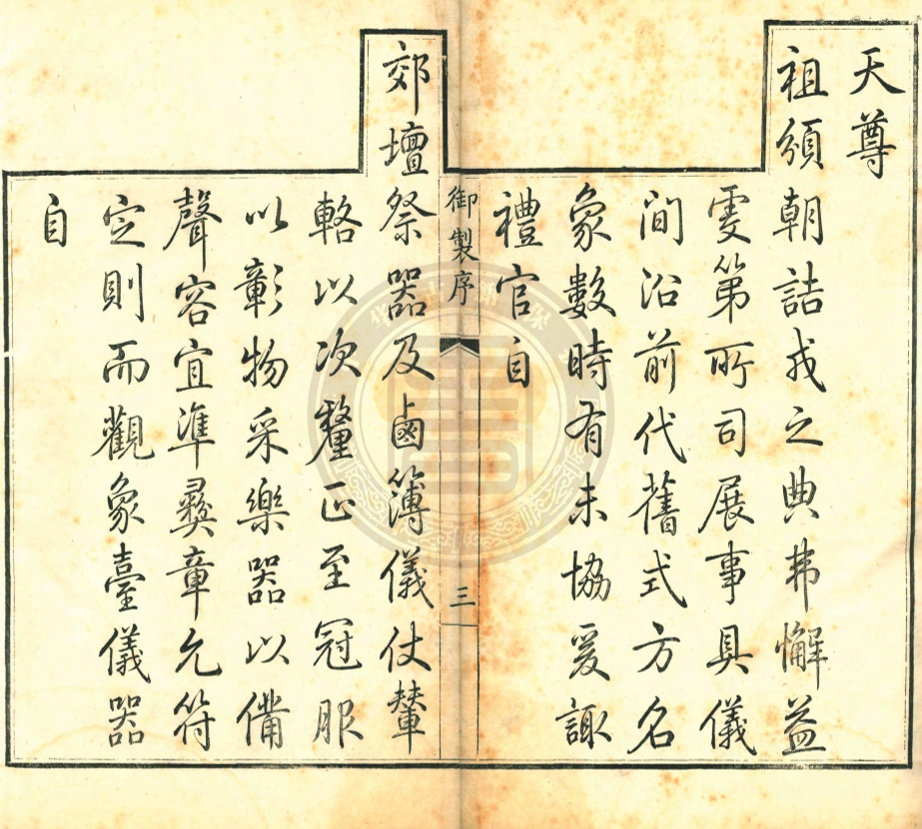 天尊
祖頒朝詰戎之典弗懈益
虔第所司展事具儀
間沿前代舊式方名
象數時有未協爰諏
禮官自
御製序
三
郊壇祭器及鹵簿儀仗輦
輅以次釐正至冠服
以彰物采樂器以備
聲容宜準彞章允符
定則而觀象臺儀器
自